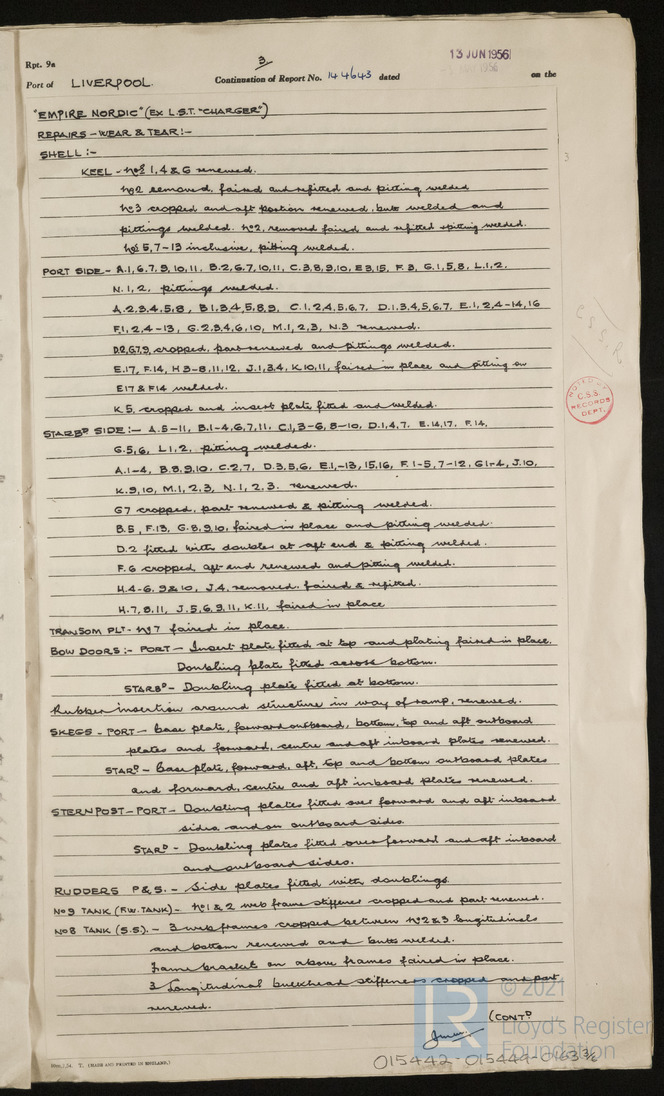 Rpt. 9a
3
13 JUN 1956
Port of LIVERPOOL. Continuation of Report No. 144643 dated on the
"EMPIRE NORDIC" (EX L.S.T. "CHARGER")
REPAIRS - WEAR & TEAR:-
SHELL:-
KEEL - Nos 1, 4 & 6 renewed.
No 2 removed, faired and refitted and pitting welded
No 3 cropped and aft portion renewed, butt welded and
pittings welded. No 2, removed faired and refitted & pitting welded.
Nos 5, 7-13 inclusive, pitting welded.
PORT SIDE - A.1, 6.7, 9, 10, 11. B.2, 6, 7, 10, 11, C.3, 8, 9, 10, E3, 15, F.3, G.1, 5, 8, L.1, 2.
N.1, 2, pittings welded.
A.2.3.4.5, 8, B1, 3, 4, 5, 8, 9, C.1, 2, 4, 5, 6, 7. D.1, 3, 4, 5, 6, 7, E.1, 2, 4-14, 16
F.1, 2, 4-13, G.2, 3, 4, 6, 10, M.1, 2, 3, N.3 renewed.
D2, G7, 9, cropped, part renewed and pittings welded.
E.17, F.14, H 3-8, 11, 12, J.1, 3, 4, K.10, 11, faired in place and pitting on
E17 & F14 welded.
K5, cropped and insert plate fitted and welded.
STARBD SIDE:- A.5-11, B.1-4, 6, 7, 11. C.1, 3-6, 8-10, D.1, 4, 7. E.14, 17. F.14,
G.5, 6, L.1, 2, pitting welded.
A.1-4, B.8, 9, 10. C.2, 7, D.3, 5, 6, E.1,-13, 15, 16, F.1-5, 7-12, G1-4, J.10,
K.9, 10, M.1, 2, 3, N.1, 2, 3. renewed.
G7 cropped, part renewed & pitting welded.
B.5, F.13, G.8, 9, 10, faired in place and pitting welded.
D.2 fitted with doubler at aft end & pitting welded.
F.6 cropped, aft end renewed and pitting welded.
H.4-6, 9 & 10, J.4, removed, faired & refitted.
H.7, 8, 11, J.5, 6, 9, 11, K.11, faired in place
TRANSOM PLT - No 7 faired in place.
BOW DOORS:- PORT - Insert plate fitted at top and plating faired in place.
Doubling plate fitted across bottom.
STARBD - Doubling plate fitted at bottom.
Rubber insertion around structure in way of ramp, renewed.
SKEGS - PORT - Base plate, forward outboard, bottom, top and aft outboard
plates and forward, centre and aft inboard plates renewed.
STARD - Base plate, forward, aft, top and bottom outboard plates
and forward, centre and aft inboard plates renewed.
STERNPOST - PORT - Doubling plates fitted over forward and aft inboard
sides and on outboard sides
STARD - Doubling plates fitted over forward and aft inboard
and outboard sides.
RUDDERS P & S. - Side plates fitted with doublings
No 9 TANK (F.W. TANK) - No 1 & 2 web frame stiffener cropped and part renewed.
No 8 TANK (S.S.) - 3 web frames cropped between No 2 & 3 longitudinals
and bottom renewed and butts welded.
Frame bracket on above frames faired in place.
3 Longitudinal bulkhead stiffeners cropped and part
renewed.
(CONTD
3
C.S.S.R.
NOTED BY
C.S.S.
RECORDS
DEPT.
LR
© 2021
Lloyd's Register
Foundation
(MADE AND PRINTED IN ENGLAND.)
015442-015444-0163 3/2